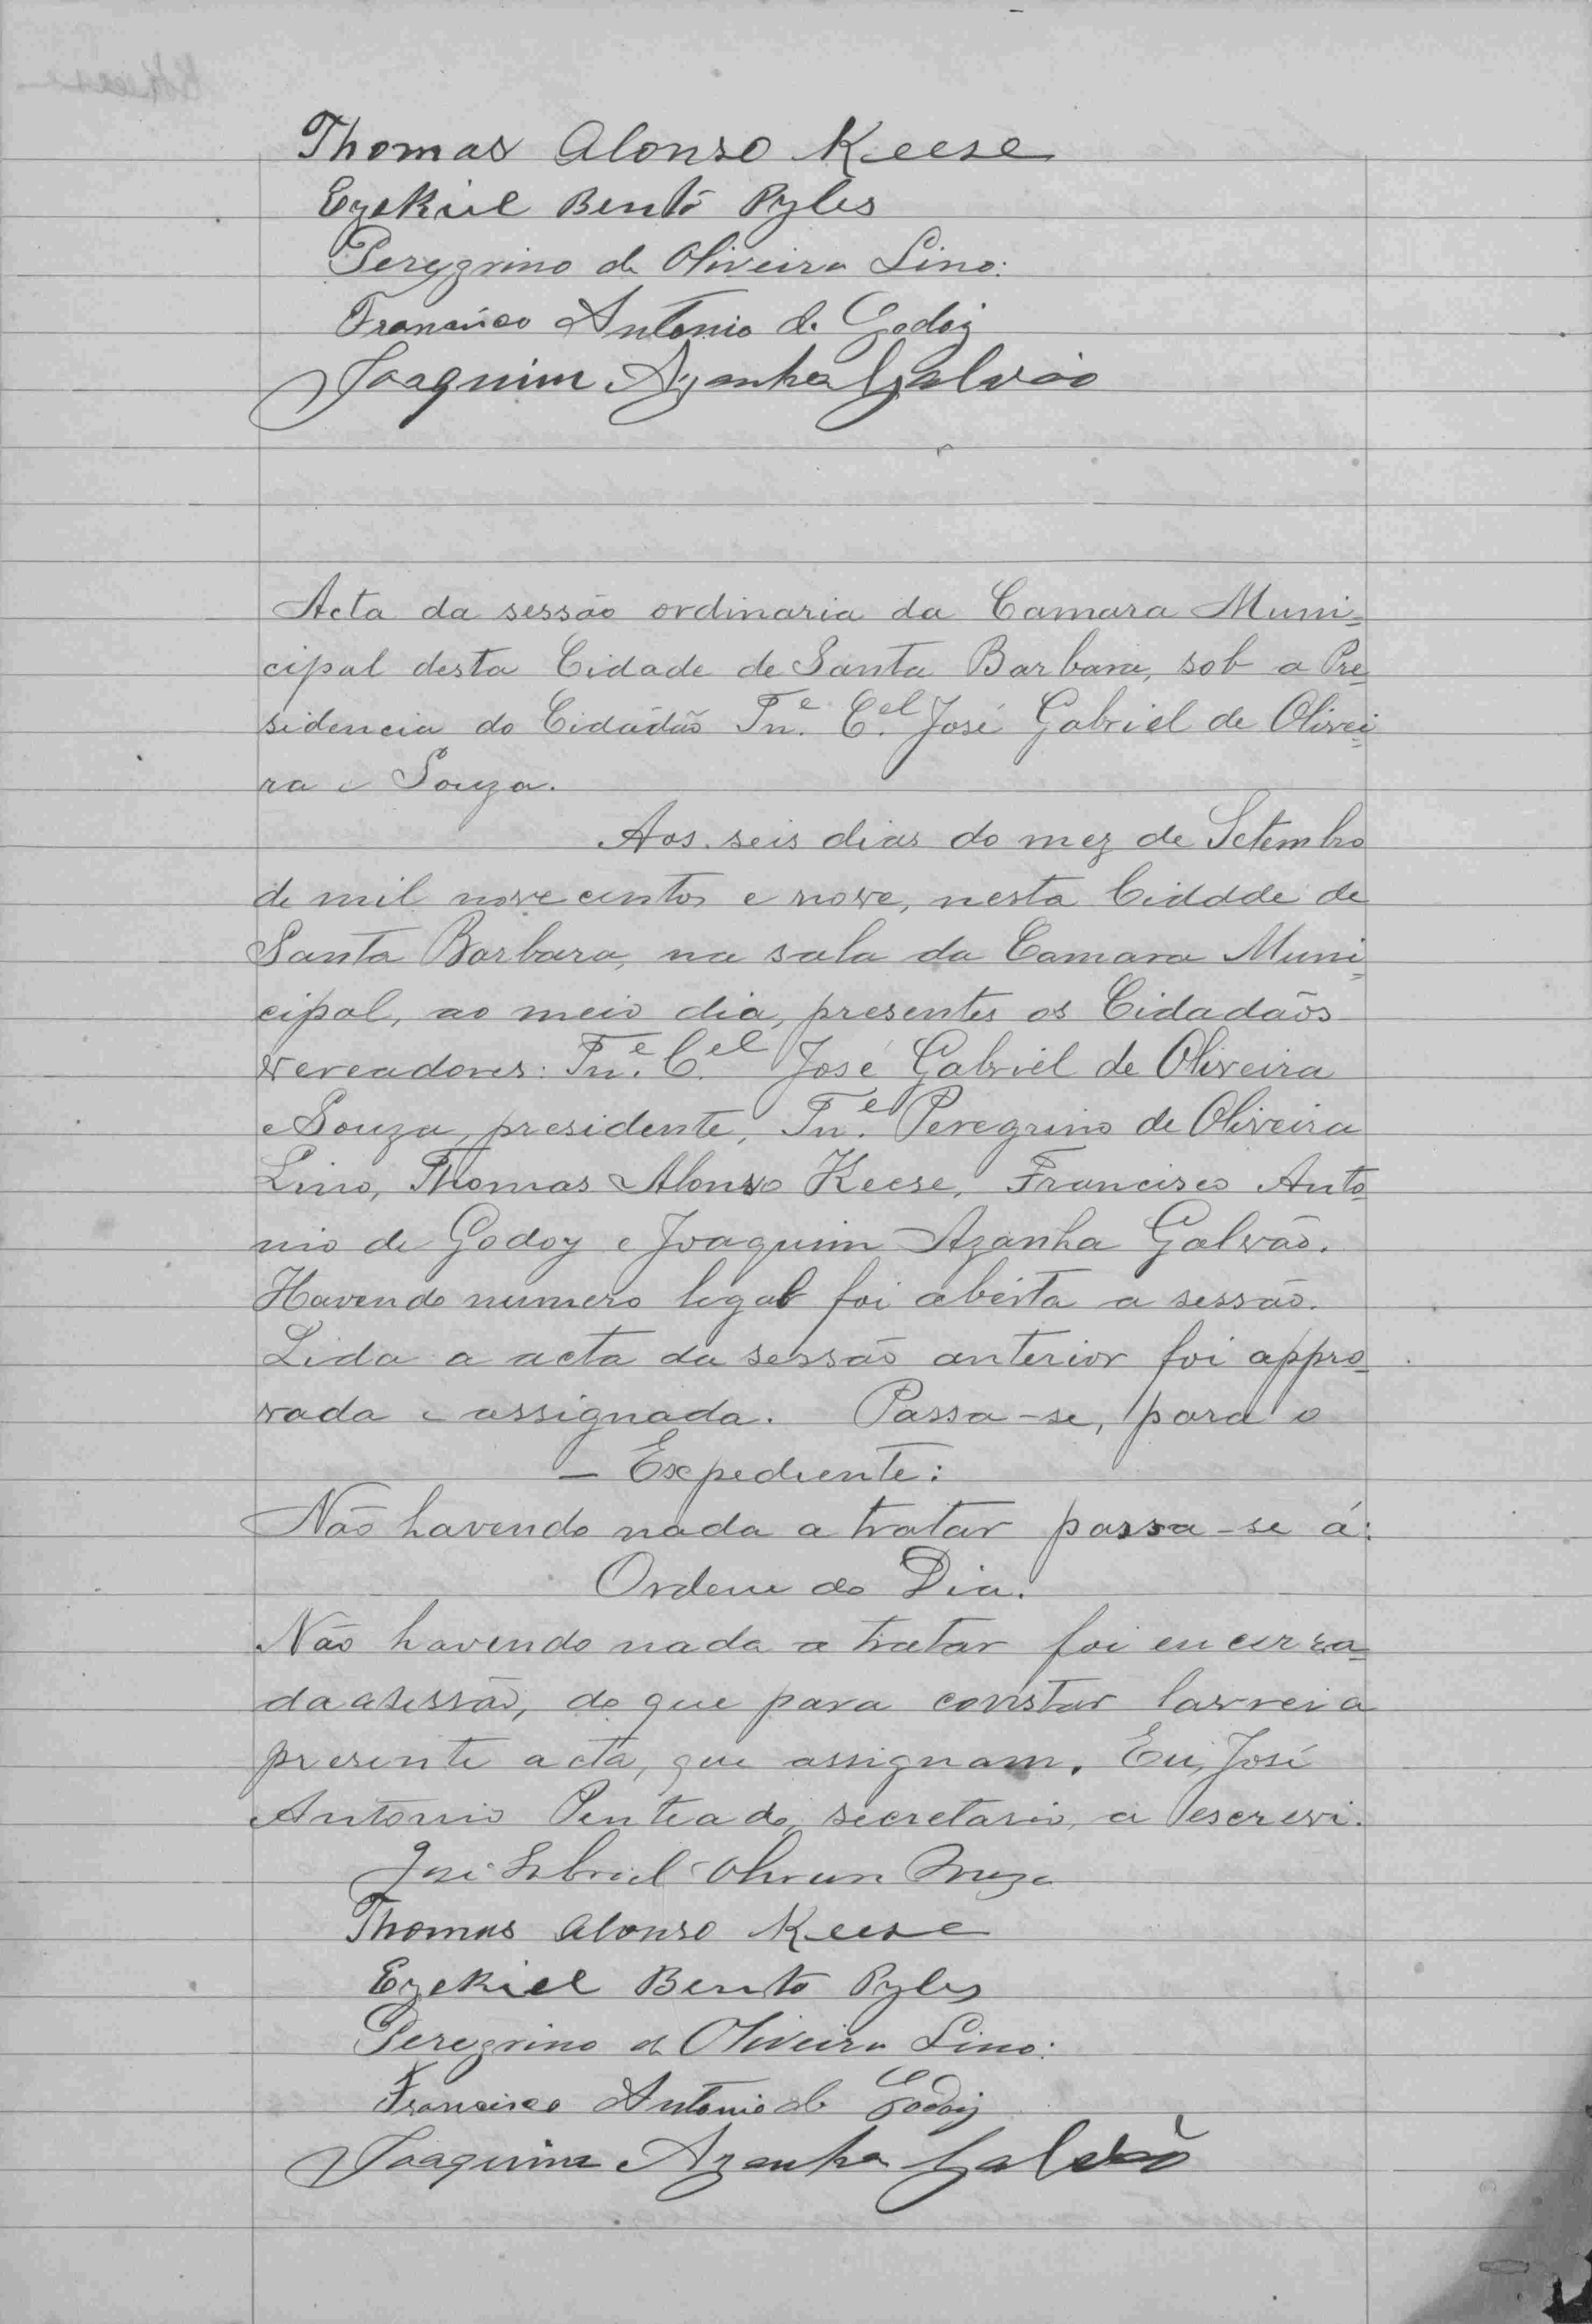 Thomas Alonso Keese
Ezekiel Bento Pyles
Peregrino de Oliveira Lino:
Francisco Antonio de Godoy
Joaquim Azanha Galvão
Acta da sessão ordinaria da Camara Muni=
cipal desta Cidade de Santa Barbara, sob a Pre=
sidencia do Cidadão Tn.e C.el José Gabriel de Olivei=
ra e Souza.
Aos seis dias do mez de Setembro
de mil novecentos e nove, nesta Ciddde de
Santa Barbara, na sala da Camara Muni=
cipal, ao meio dia, presentes os Cidadãos
vereadores: Tn.e C.el José Gabriel de Oliveira
e Souza, presidente, Tn.e Peregrino de Oliveira
Lino, Thomas Alonso Keese, Francisco Anto=
nio de Godoy e Joaquim Azanha Galvão.
Havendo numero legal foi aberta a sessão.
Lida a acta da sessão anterior foi appro=
vada e assignada. Passa-se, para o
— Expediente:
Não havendo nada a tratar passa-se á:
Ordem do Dia.
Não havendo nada a tratar foi encerra=
da a sessão, do que para constar lavrei a
presente acta, que assignam. Eu, José
Antonio Penteado, secretario, a escrevi.
José Gabriel Oliveira Souza
Thomas Alonso Keese
Ezekiel Bento Pyles
Peregrino de Oliveira Lino:
Francisco Antonio de Godoy
Joaquim Azanha Galvão